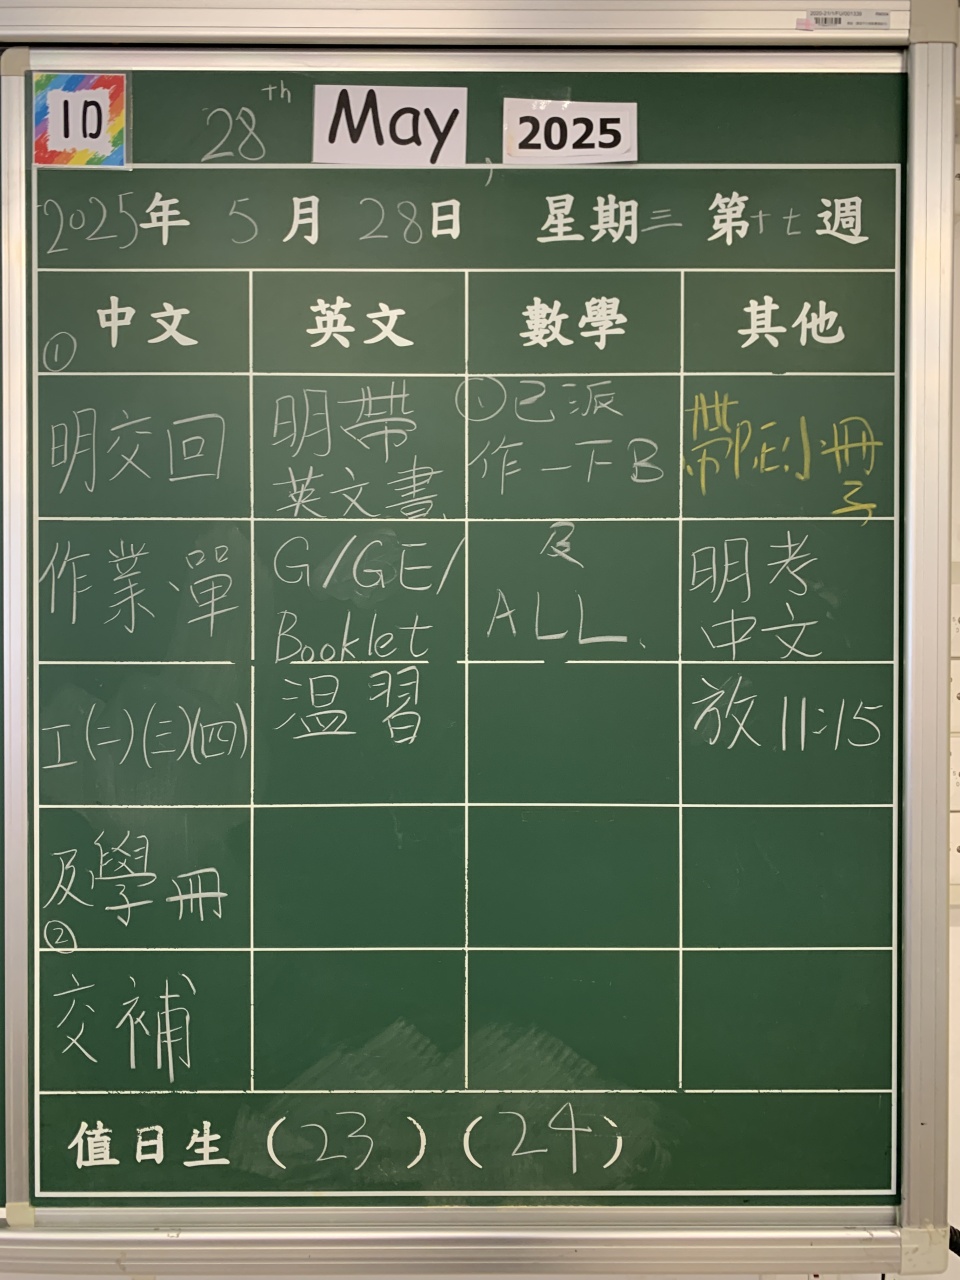 1D
28th May, 2025
2025年 5月 28日 星期三 第十七週
中文 英文 數學 其他
①
明交回
作業單
工(二)(三)(四)
及學冊
②
交補
明帶
英文書
G/GE/
Booklet
温習
①已派
作一下B
及
ALL
小冊
子
明考
中文
放11:15
值日生 (23) (24)